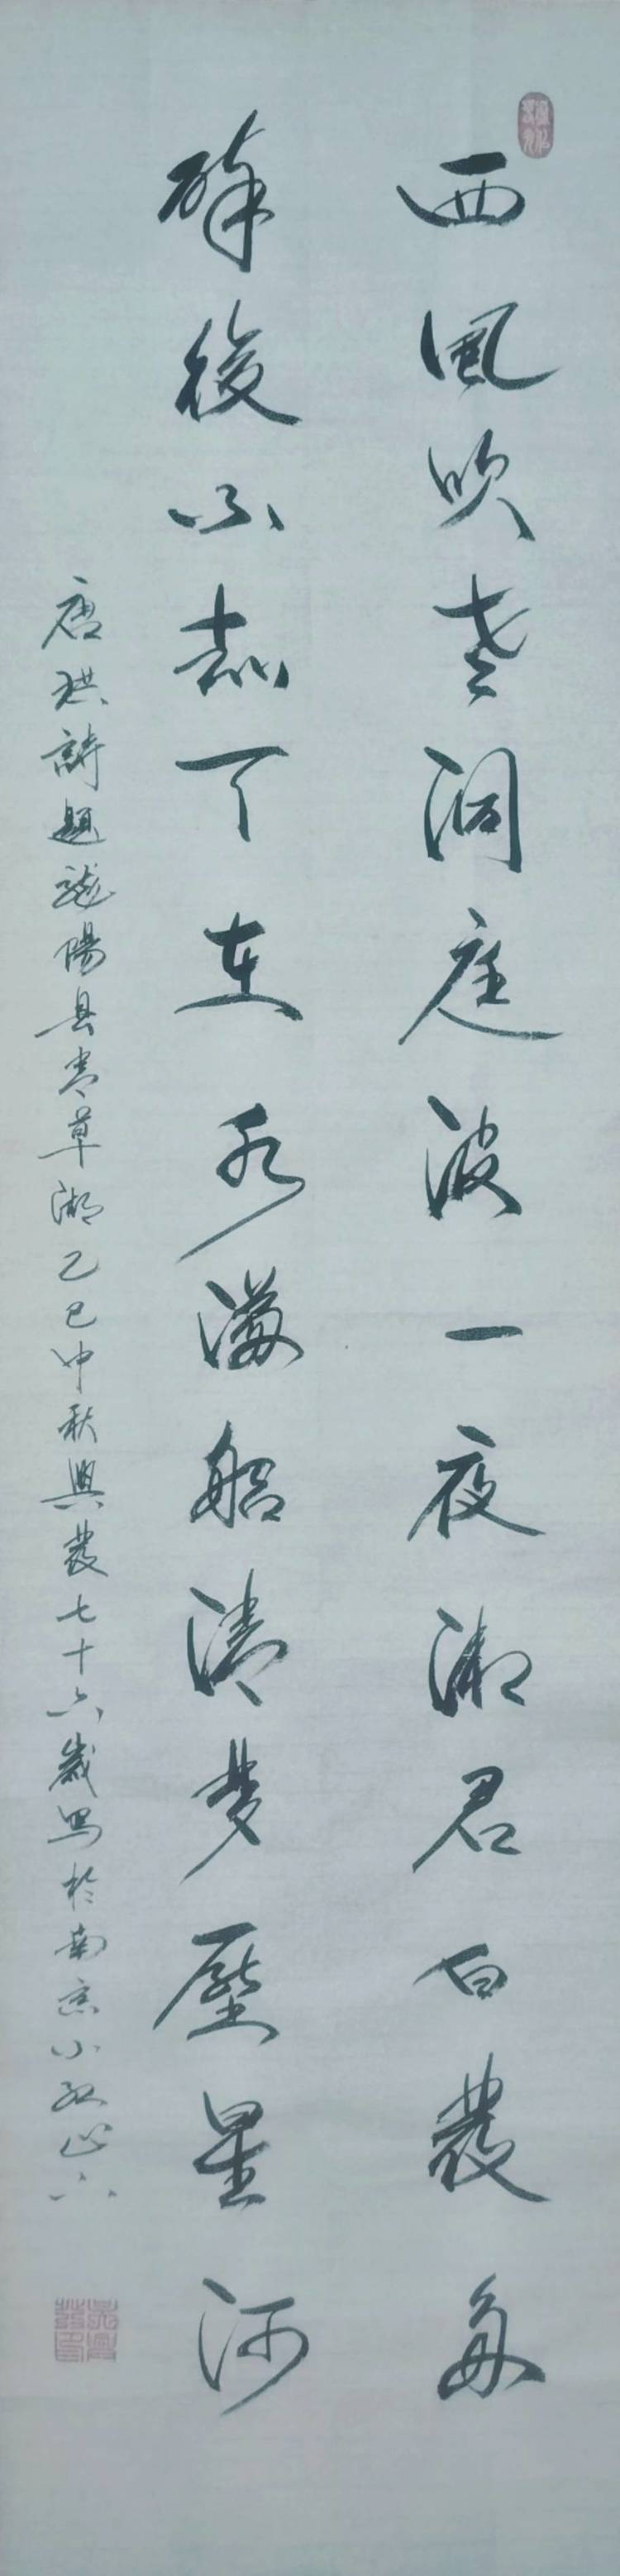 西風吹老洞庭波一夜湘君白發多
醉後不知天在水滿船清夢壓星河
唐珙詩題龍陽县青草湖乙巳中秋興發七十六歲写於南京小紅山下